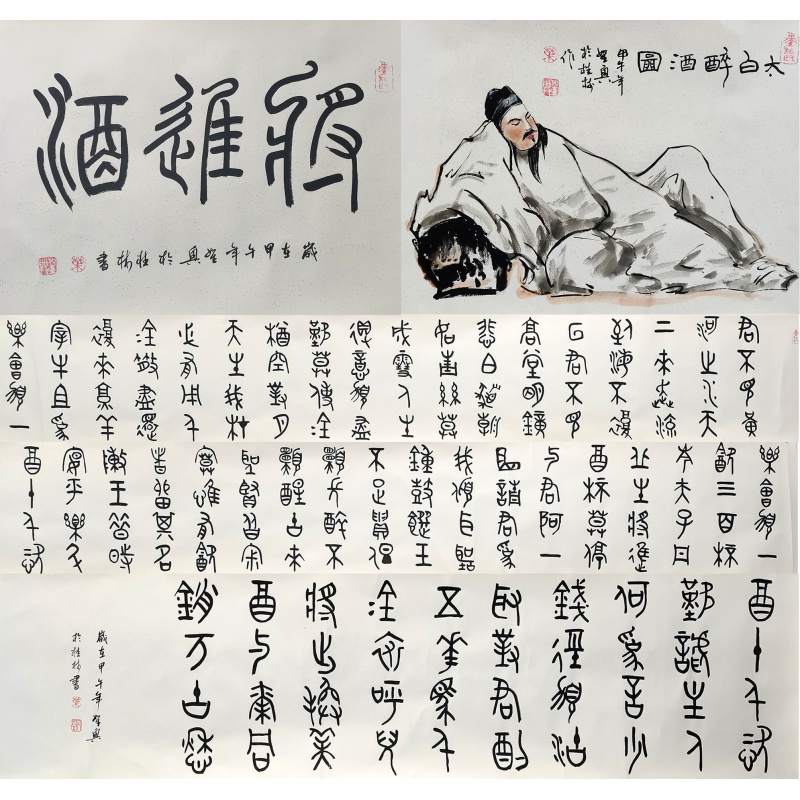 將進酒
歲在甲午年興於桂林書
太白醉酒圖
甲午年
興
於桂林
作
君不見黃
河之水天
上來奔流
到海不復
回君不見
高堂明鏡
悲白髮朝
如青絲暮
成雪人生
得意須盡
歡莫使金
樽空對月
天生我材
必有用千
金散盡還
復來烹羊
宰牛且為
樂會須一
樂會須一
飲三百杯
岑夫子丹
丘生將進
酒杯莫停
與君歌一
曲請君為
我傾耳聽
鐘鼓饌玉
不足貴但
願長醉不
願醒古來
聖賢皆寂
寞惟有飲
者留其名
陳王昔時
宴平樂斗
酒十千恣
酒十千恣
歡謔主人
何為言少
錢徑須沽
取對君酌
五花馬千
金裘呼兒
將出換美
酒與爾同
銷萬古愁
歲在甲午年興
於桂林書